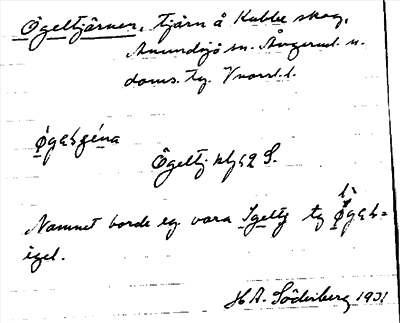 Ögeltjärnen, tjärn å Kubbe skog,
Anundsjö sn. Ångerml. n.
doms. tg. V.norrl. l.
Ögeltj. 2 S.
Namnet borde eg. vara Igeltj ty
igel.
H A. Söderberg 1931